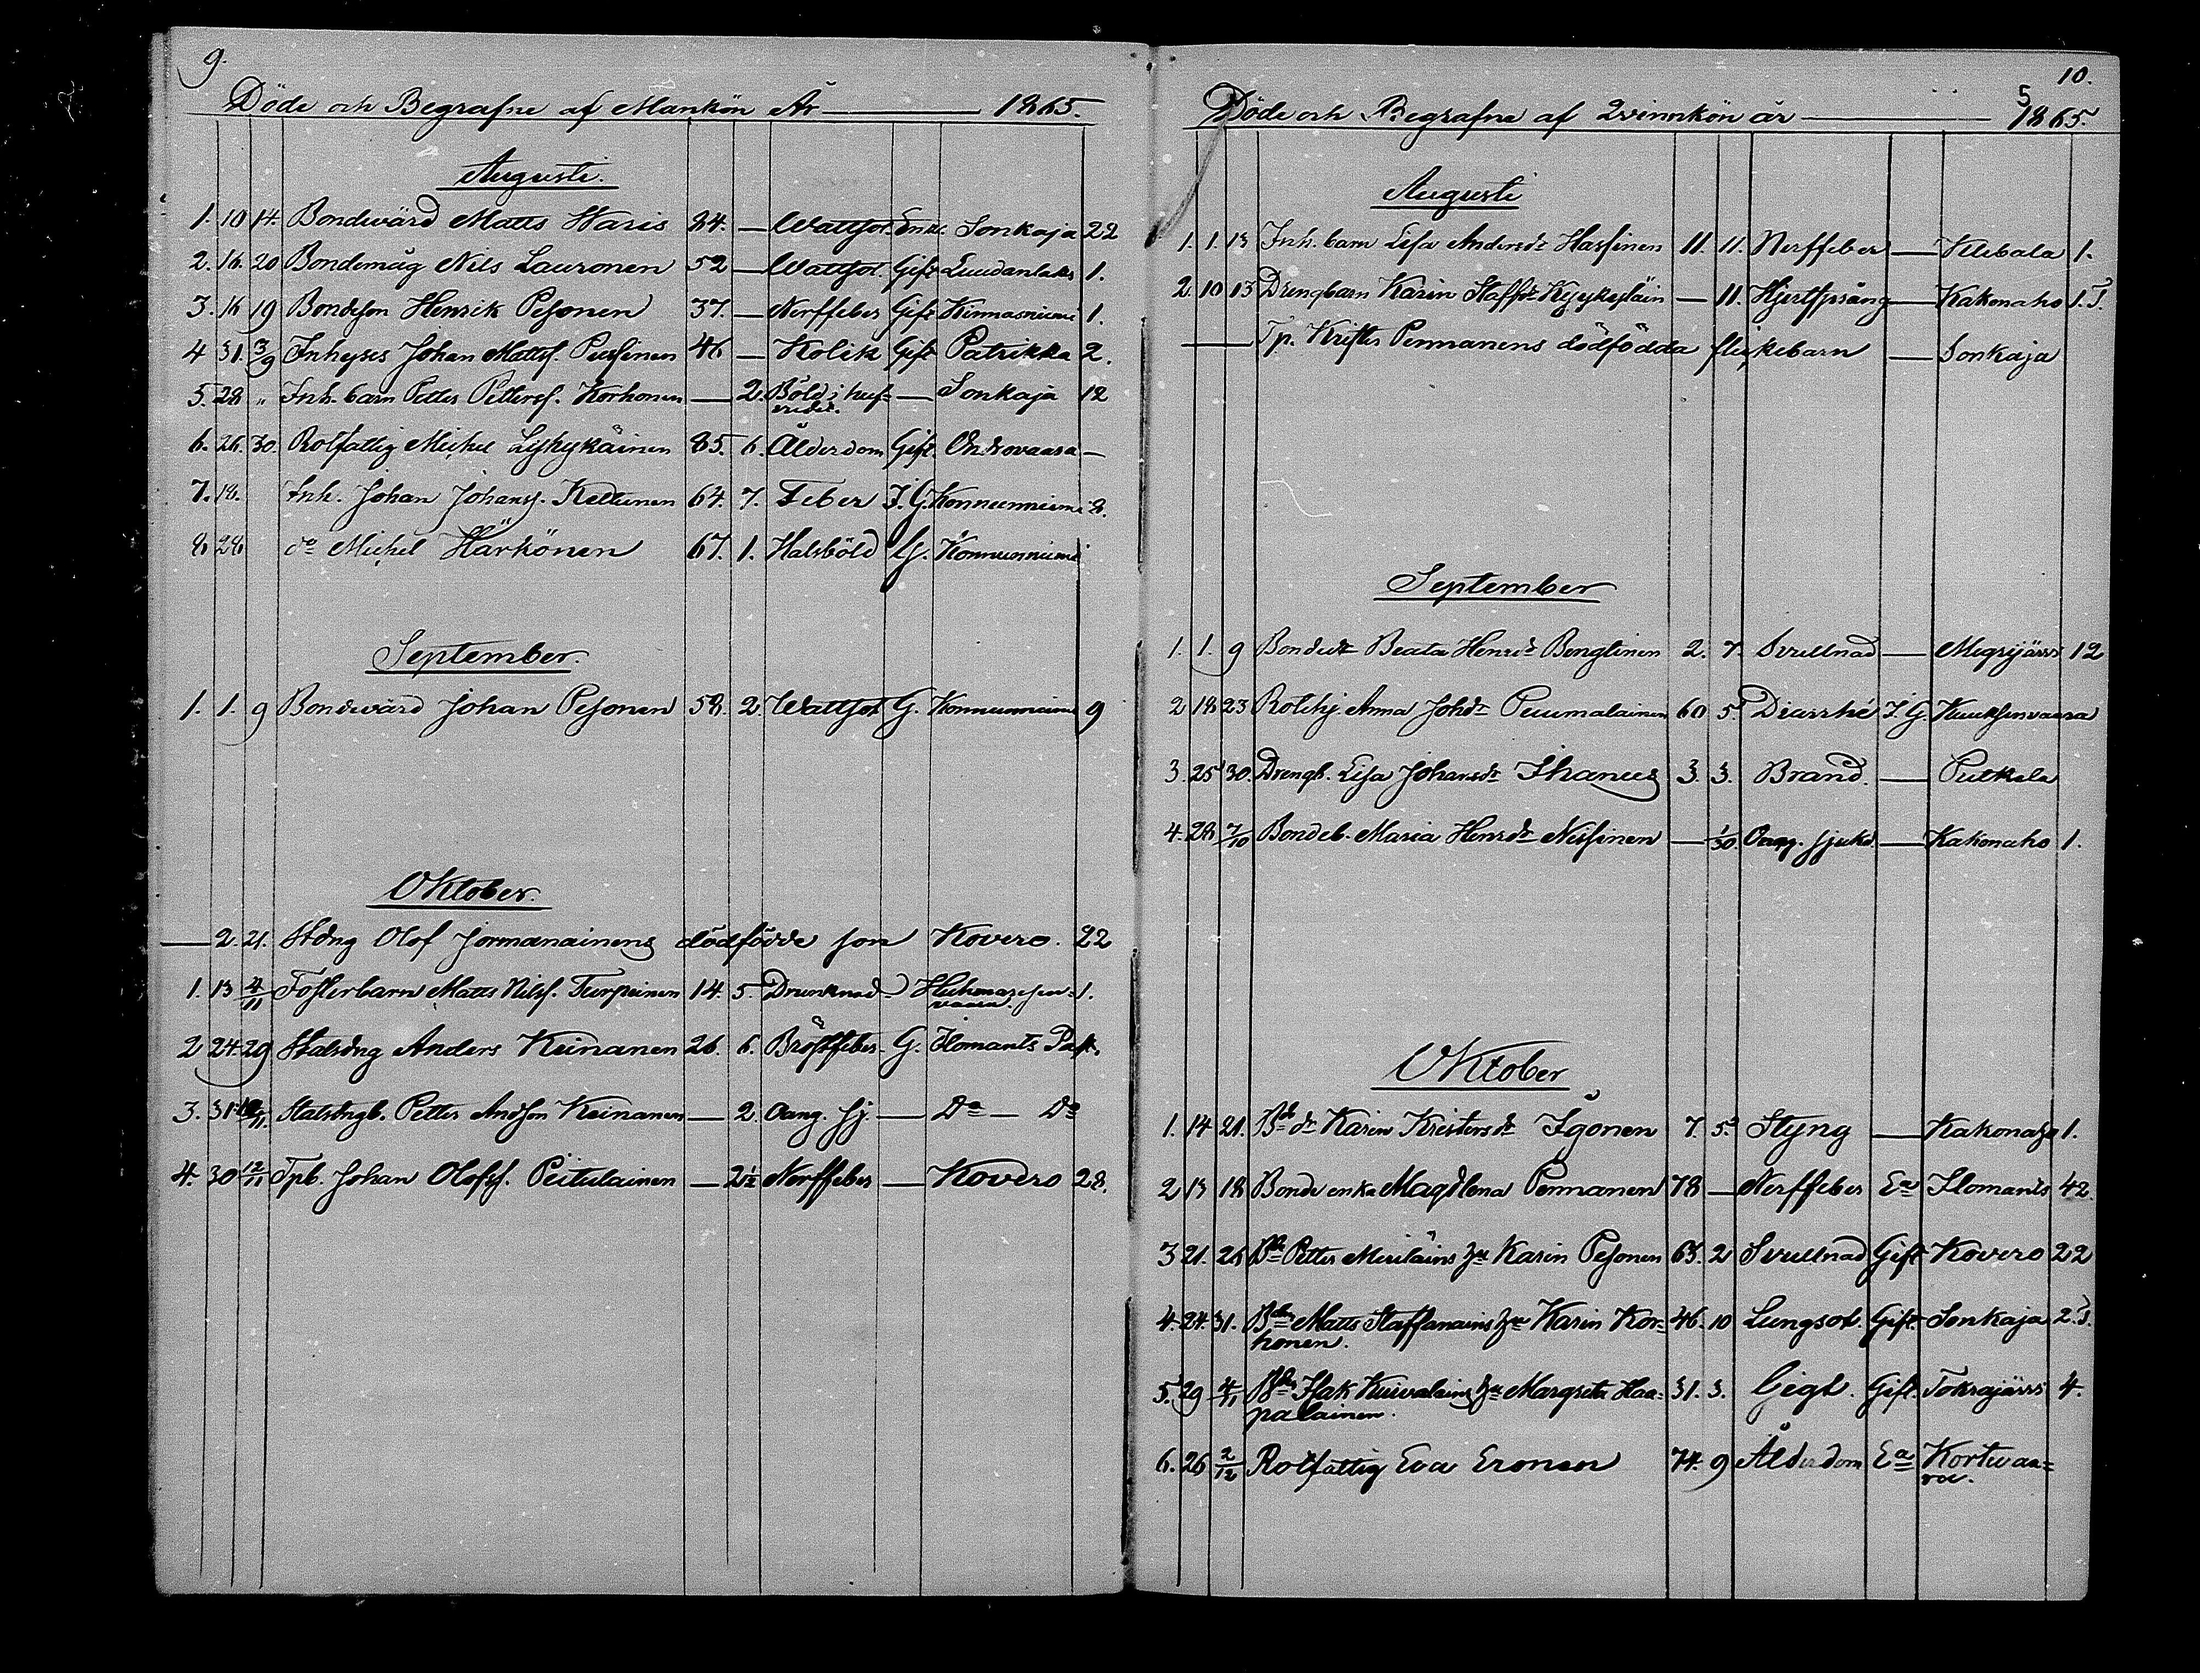 9.
Döde och Begrafne af Mankön År 1865.
Augusti.
1. 10 14. Bondevärd Matts Haris 84. — Wattsot. Enkl. Sonkaja 22
2. 16. 20 Bondemåg Nils Lauronen 52 — Wattsot. Gift 1.
3. 16 19 Bondeson Henrik Pesonen 37. — Nerffeber Gift Kinnasniemi 1.
4 31. 3/9 Inhyses Johan Mattss. Pussinen 46 — Kolik Gift Patrikka 2.
5. 28 " Inh. barn Petter Petterss. Korhonen — 2. Böld i huf- — Sonkaja 12
vudet.
6. 26. 30. Rotfattig Michel Lyhykäinen 85. 6. Ålderdom Gift —
7. 18. Inh. Johan Johanss. Kettunen 64. 7. Feber I. G. Konnunniemi 8.
8 28 do Michel Härkönen 67. 1. Halsböld G. Konnunniemi
September.
1. 1. 9 Bondevärd Johan Pesonen 58. 2. Wattsot G. Konnunniemi 9
Oktober.
— 2. 21. Stdng Olof Jormanainens dödfödde son Kovero. 22
1. 13 4/11 Fosterbarn Matts Nilss. Turpeinen 14. 5. Drunknad 1.
vaara.
2 24. 29 Statsdng Anders Keinanen 26. 6. Bröstfeber G. Ilomants Past.
3. 31. Statsdngb. Petter Andsson Keinanen — 2. Oang. sj. — Do — Do
4. 30 12/11 Tpb. Johan Olofss. Piitulainen — 2½ Nerffeber — Kovero 28.
10.
5
Döde och Begrafne af Qvinnkön år 1865.
Augusti
1. 1. 13 Inh. barn Lisa Andersdr Hassinen 11. 11. Nerffeber — 1.
2. 10 13 Drengbarn Karin Staffdr — 11. Hjertsprång — Kakonaho 1. T.
— Tp. Krister Pennanens dödfödda flickebarn — Sonkaja
September
1. 1. 9 Bondedr Beata Henrdr Benglinen 2. 7. Svullnad — Megrijärvi 12
2 18 23 Rothj. Anna Johdr Puumalainen 60 5. Diarrhé I. G. Kuuksenvaara
3. 25 30. Drengb. Lisa Johansdr Ihanus 3. 3. Brand. — Putkela
4. 28 7/10 Bondeb. Maria Henrdr Nissinen — 1/30. Oang. sjukd. — Kakonaho 1.
Oktober
1. 14 21. Bd dr Karin Kristersdr Igonen 7. 5. Styng — 1.
2 13 18 Bonde enka Magdlena Pennanen 78 — Nerffeber Ea Ilomants 42.
3 21. 28 Petter Meriläins hu Karin Pesonen 63. 2 Svullnad Gift Kovero 22
4. 24. 31. Bdn Matts Staffanains hu Karin Kor- 46. 10 Lungsot. Gift. Sonkaja 2. T.
honen.
5. 29 4/11 Isak Kuivalains hu Margreta Haa- 31. 3. Gigt. Gift. Tokrajärvi 4.
palainen.
6. 26 2/12 Rotfattig Eva Eronen 74. 9 Ålderdom Ea Kortevaa-
ra.